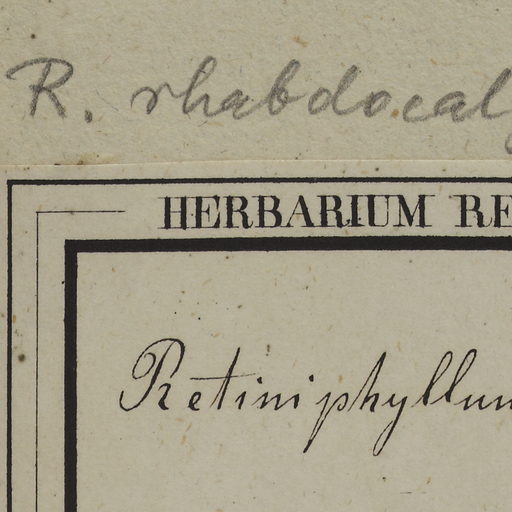 R. rhabdocaly
HERBARIUM RE
Retiniphyllum